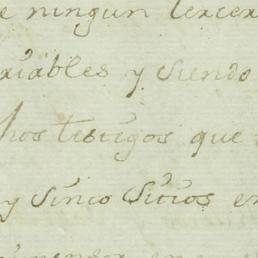 e ningun tercer
xiables y siendo
hos testigos que
y sinco sitios en